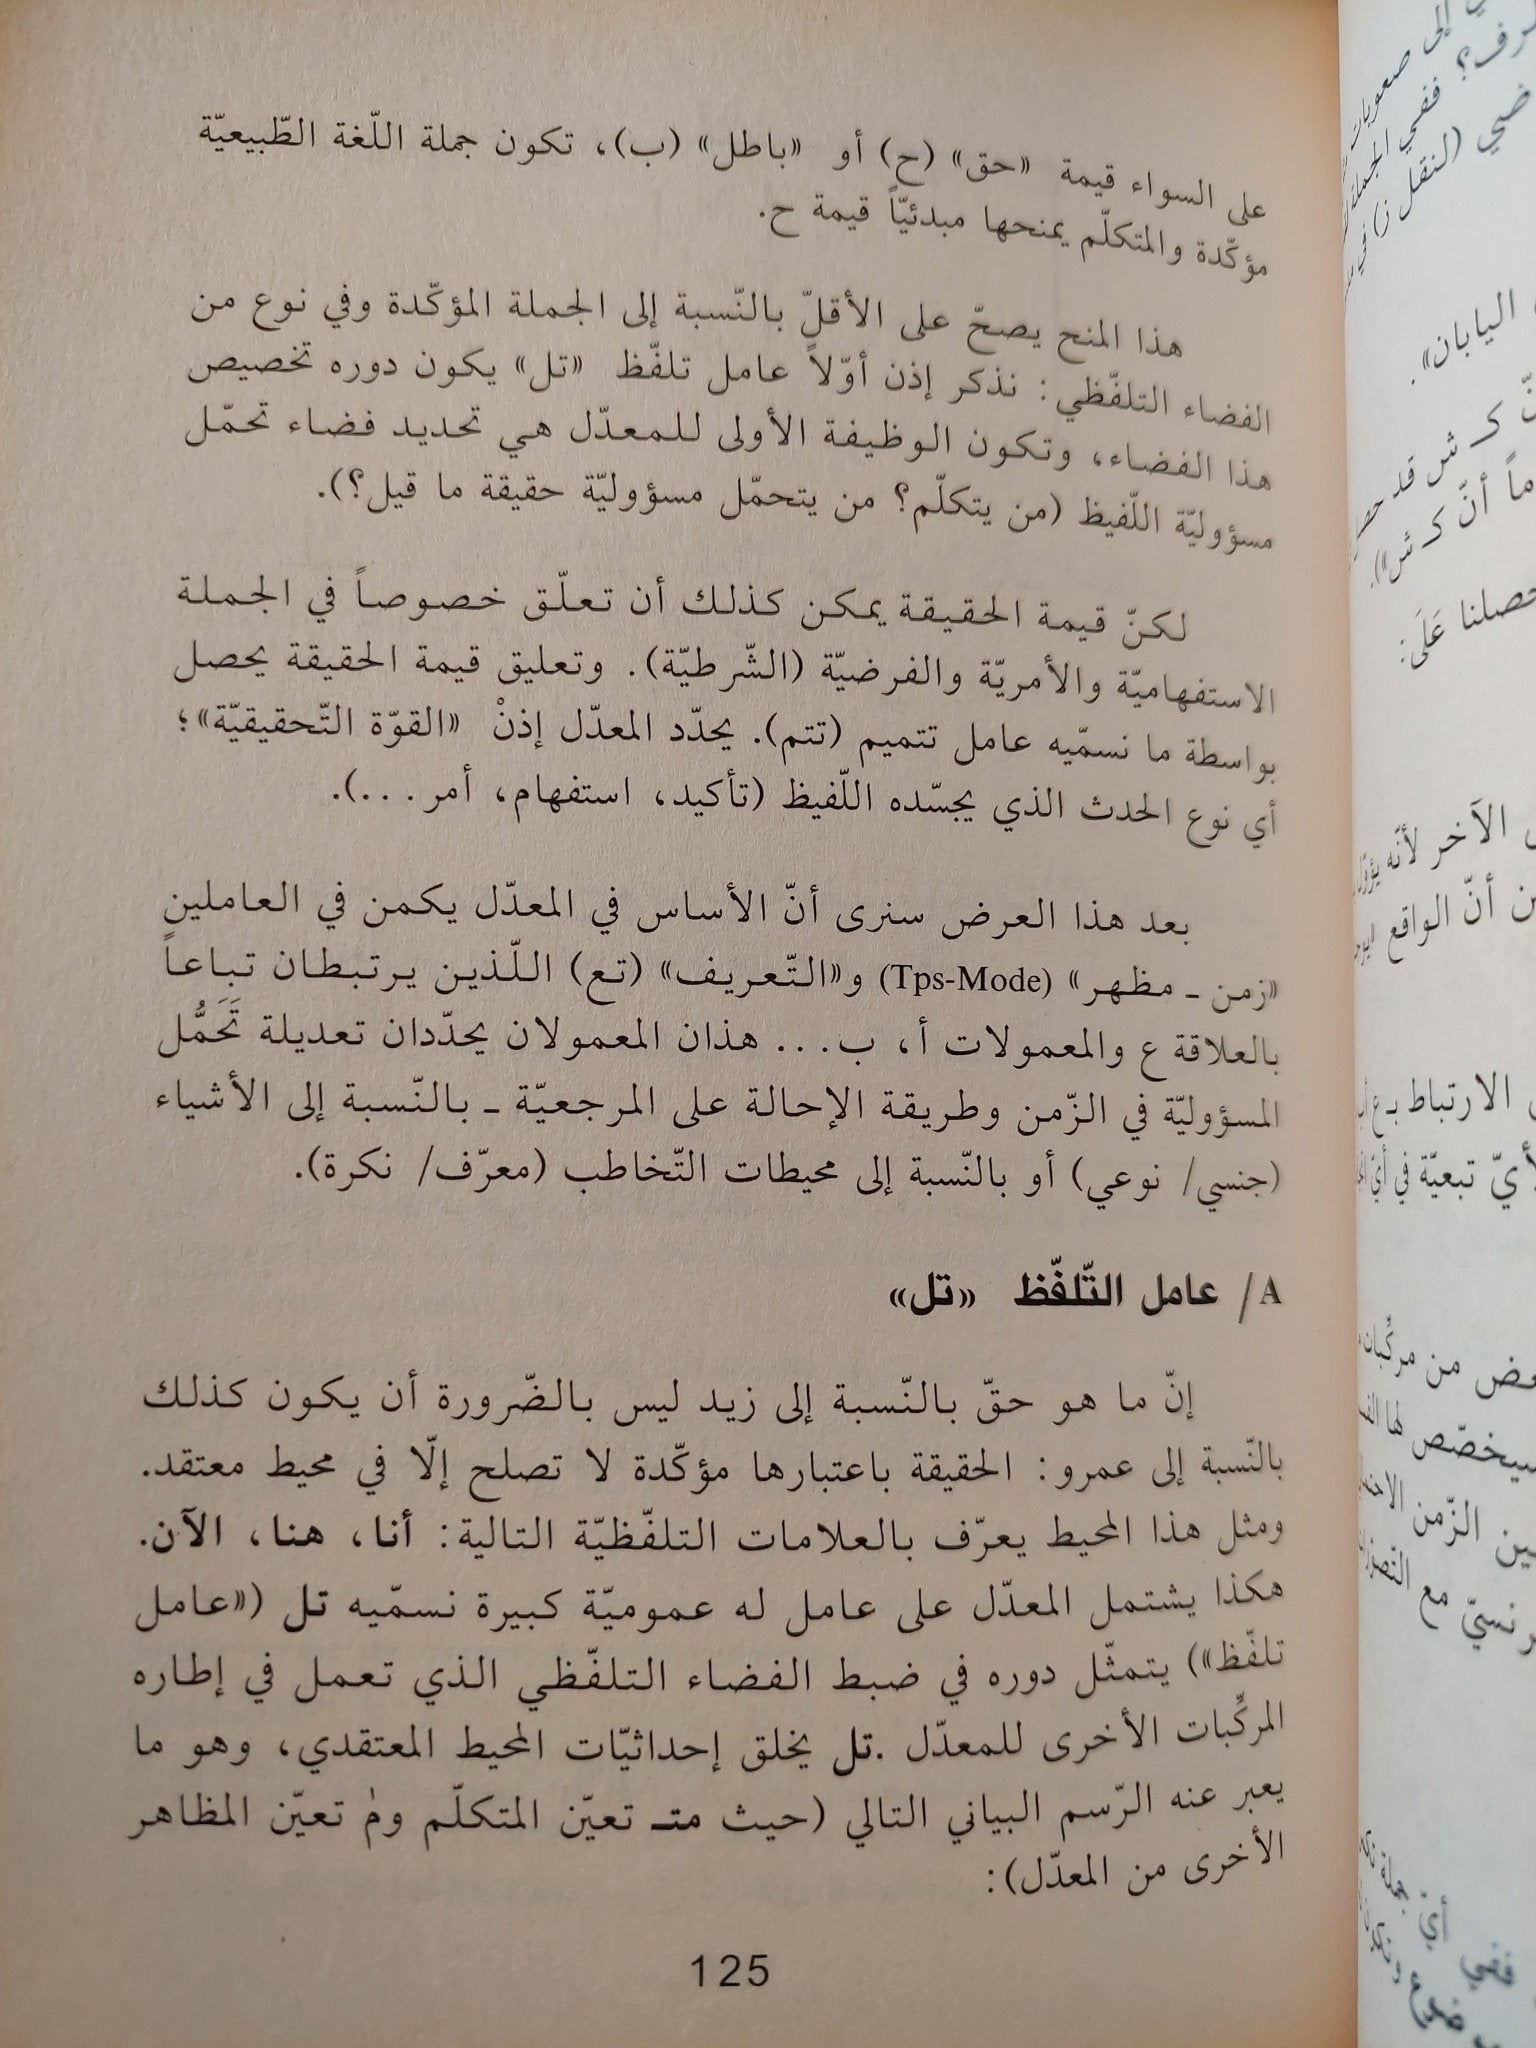 على السواء قيمة «حق» (ح) أو «باطل» (ب)، تكون جملة اللّغة الطّبيعيّة
مؤكّدة والمتكلّم يمنحها مبدئيّاً قيمة ح.
هذا المنح يصحّ على الأقلّ بالنّسبة إلى الجملة المؤكّدة وفي نوع من
الفضاء التلفّظي: نذكر إذن أوّلاً عامل تلفّظ «تل» يكون دوره تخصيص
هذا الفضاء، وتكون الوظيفة الأولى للمعدّل هي تحديد فضاء تحمّل
مسؤوليّة اللّفيظ (من يتكلّم؟ من يتحمّل مسؤوليّة حقيقة ما قيل؟).
لكنّ قيمة الحقيقة يمكن كذلك أن تعلّق خصوصاً في الجملة
الاستفهاميّة والأمريّة والفرضيّة (الشّرطيّة). وتعليق قيمة الحقيقة يحصل
بواسطة ما نسمّيه عامل تتميم (تتم). يحدّد المعدّل إذنْ «القوّة التّحقيقيّة»؛
أي نوع الحدث الذي يجسّده اللّفيظ (تأكيد، استفهام، أمر...).
بعد هذا العرض سنرى أنّ الأساس في المعدّل يكمن في العاملين
«زمن ـ مظهر» (Tps-Mode) و«التّعريف» (تع) اللّذين يرتبطان تباعاً
بالعلاقة ع والمعمولات أ، ب... هذان المعمولان يحدّدان تعديلة تَحَمُّل
المسؤوليّة في الزّمن وطريقة الإحالة على المرجعيّة ـ بالنّسبة إلى الأشياء
(جنسي/ نوعي) أو بالنّسبة إلى محيطات التّخاطب (معرّف/ نكرة).
A/ عامل التّلفّظ «تل»
إنّ ما هو حقّ بالنّسبة إلى زيد ليس بالضّرورة أن يكون كذلك
بالنّسبة إلى عمرو: الحقيقة باعتبارها مؤكّدة لا تصلح إلّا في محيط معتقد.
ومثل هذا المحيط يعرّف بالعلامات التلفّظيّة التالية: أنا، هنا، الآن.
هكذا يشتمل المعدّل على عامل له عموميّة كبيرة نسمّيه تل («عامل
تلفّظ») يتمثّل دوره في ضبط الفضاء التلفّظي الذي تعمل في إطاره
المركِّبات الأخرى للمعدّل .تل يخلق إحداثيّات المحيط المعتقدي، وهو ما
يعبر عنه الرّسم البياني التالي (حيث متـ تعيّن المتكلّم ومٰ تعيّن المظاهر
الأخرى من المعدّل):
125
إلى صعوبات
ففي الجملة
اليابان».
كـ ش قد حصل
أنّ كـ ش»).
حصلنا عَلَى:
الآخر لأنّه
أنّ الواقع
الارتباط بـ ع
تبعيّة في أيّ
من مركِّبات
الزّمن
مع
ففي أيّ